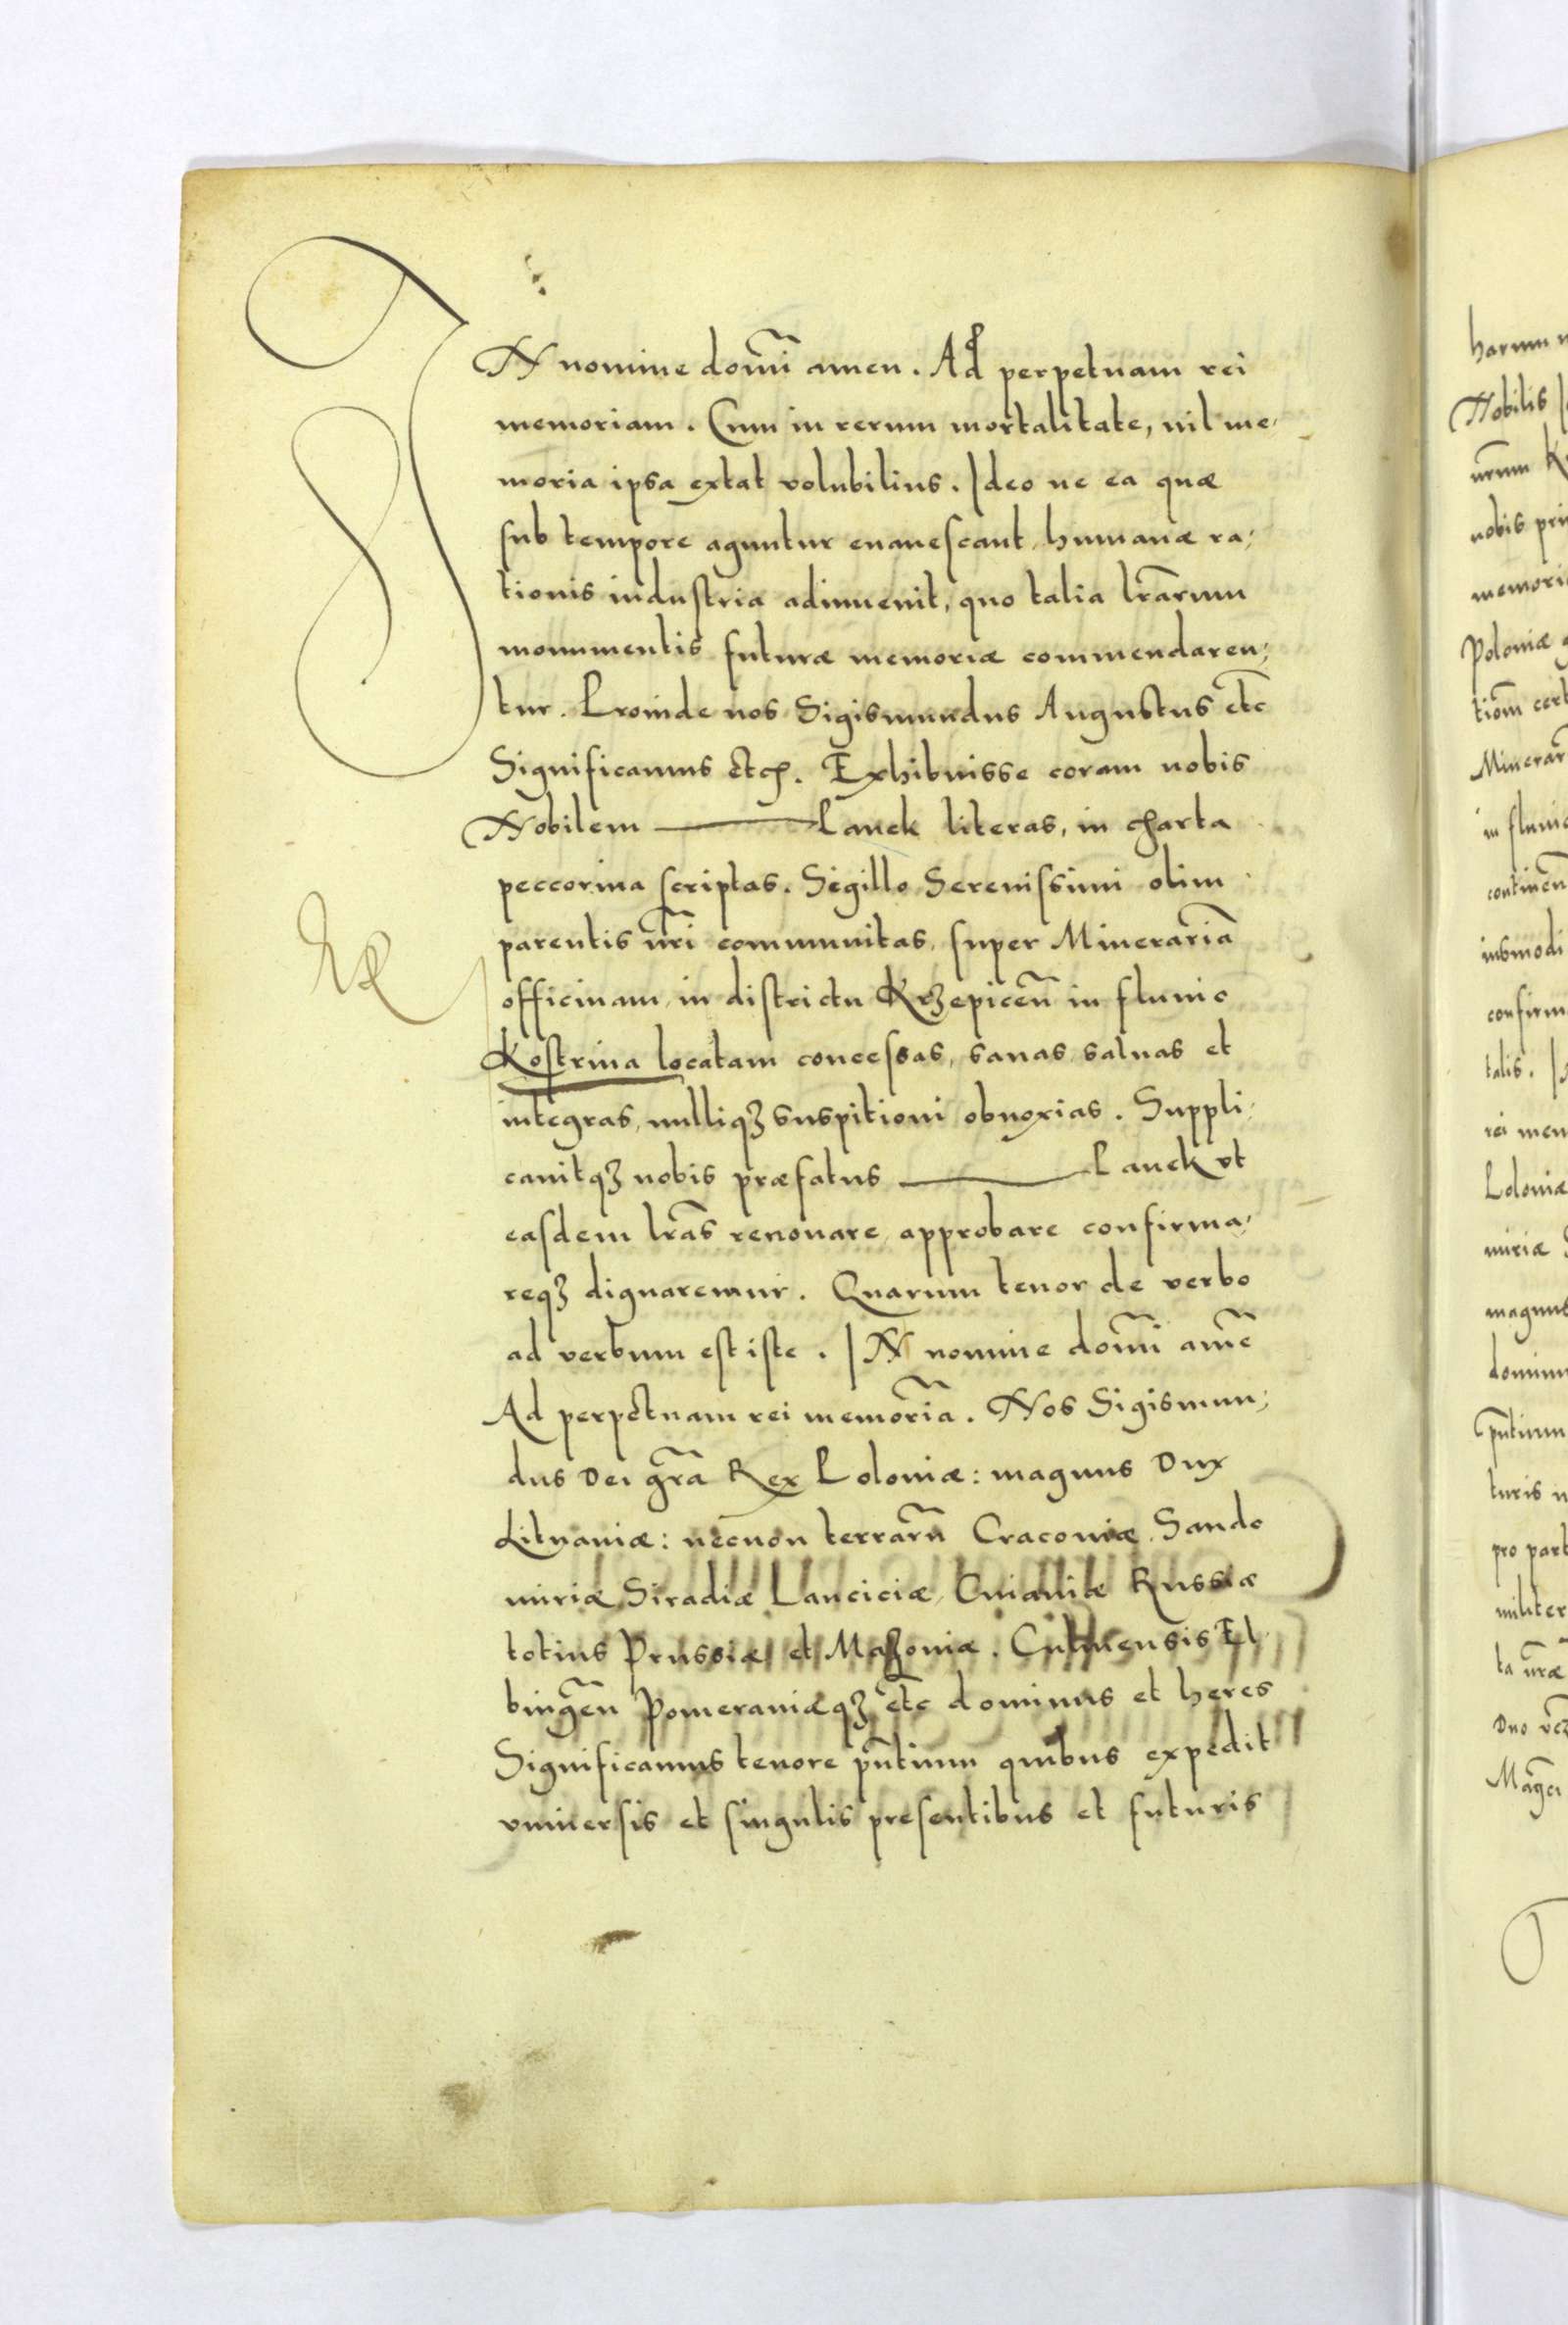 IN nomine domĩ amen. Ad perpetuam rei
memoriam. Cum in rerum mortalitate, nil me-
moria ipsa extat volubilius. Ideo ne ea quæ
sub tempore aguntur euanescant, humanæ ra-
tionis industria adinuenit, quo talia lrãrum
monumentis futuræ memoriæ commendaren-
tur. Proinde nos Sigismundus Augustus etc
Significamus etc. Exhibuisse coram nobis
Nobilem ——— Panek literas, in charta
peccorina scriptas. Sigillo Serenissimi olim
parentis nr̃i communitas, super Minerariã
officinam, in districtu Krzepiceñ in fluuio
Kostrina locatam concessas, sanas saluas et
integras, nulliqꝫ suspitioni obnoxias. Suppli-
cauitqꝫ nobis præfatus ——— Panek vt
easdem lrãs renouare, approbare confirma-
reqꝫ dignaremur. Quarum tenor de verbo
ad verbum est iste. IN nomine domĩ amẽ
Ad perpetuam rei memoriã. Nos Sigismun-
dus Dei grã Rex Poloniæ: magnus Dux
Lituaniæ: necnon terrarũ Cracouiæ, Sando
miriæ Siradiæ Lanciciæ, Cuiauiæ Russiæ
totius Prussiæ et Mazouiæ. Culmensis El-
bingeñ Pomeraniæqꝫ etc dominus et heres
Significamus tenore pñtium quibus expedit
vniuersis et singulis presentibus et futuris
harum
Nobilis
nobis
Poloniæ
in
talis.
Poloniæ
turis
pro
ta nr̃æ